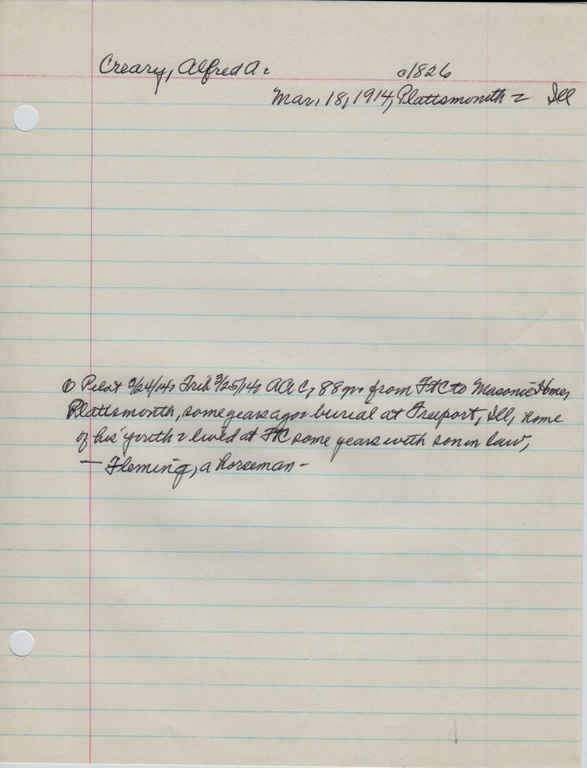 Creary, Alfred A. c1826
Mar. 18, 1914, Plattsmouth - Ill
Pilot 3/24/14, Trib 3/25/14, AAC, 88 yr. from FtC to Masonic Home,
Plattsmouth, some years ago - burial at Freeport, Ill, home
of his youth - lived at FtC some years with son in law,
— Fleming, a horseman -